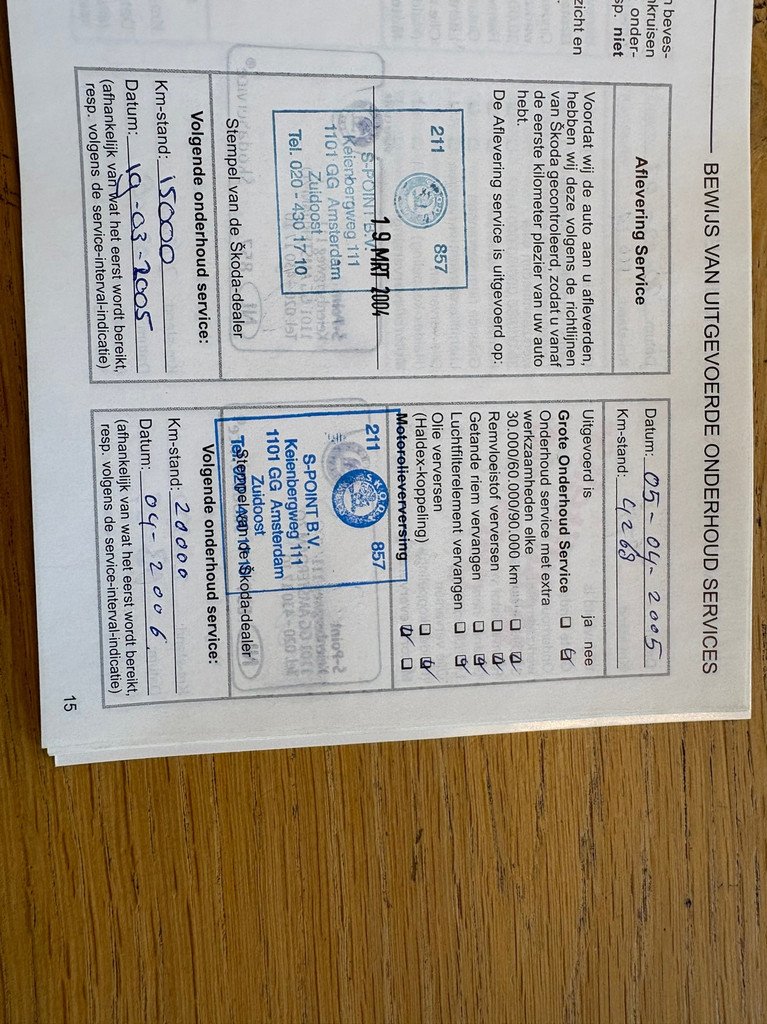 n beves-
nkruisen
onder-
sp. niet
zicht en
BEWIJS VAN UITGEVOERDE ONDERHOUD SERVICES
Aflevering Service
Voordat wij de auto aan u afleverden,
hebben wij deze volgens de richtlijnen
van Škoda gecontroleerd, zodat u vanaf
de eerste kilometer plezier van uw auto
hebt.
De Aflevering service is uitgevoerd op:
19 MRT 2004
211 857
SKODA
S-POINT B.V.
Keienbergweg 111
1101 GG Amsterdam
Zuidoost
Tel. 020 - 430 17 10
Stempel van de Škoda-dealer
Volgende onderhoud service:
Km-stand: 15000
Datum: 19-03-2005
(afhankelijk van wat het eerst wordt bereikt,
resp. volgens de service-interval-indicatie)
Datum: 05-04-2005
Km-stand: 4268
Uitgevoerd is ja nee
Grote Onderhoud Service
Onderhoud service met extra
werkzaamheden elke
30.000/60.000/90.000 km
Remvloeistof verversen
Getande riem vervangen
Luchtfilterelement vervangen
Olie verversen
(Haldex-koppeling)
Motorolieverversing
211 857
SKODA
S-POINT B.V.
Keienbergweg 111
1101 GG Amsterdam
Zuidoost
Tel. 020 - 430 17 10
Stempel van de Škoda-dealer
Volgende onderhoud service:
Km-stand: 20000
Datum: 04-2006
(afhankelijk van wat het eerst wordt bereikt,
resp. volgens de service-interval-indicatie)
15